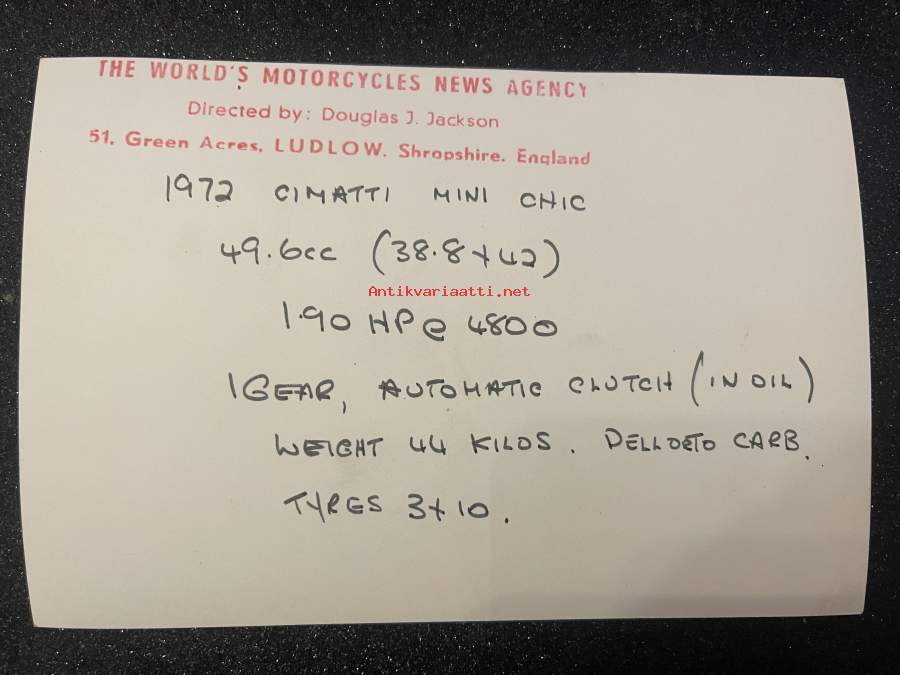 THE WORLD'S MOTORCYCLES NEWS AGENCY
Directed by: Douglas J. Jackson
51, Green Acres, LUDLOW. Shropshire. England
1972 CIMATTI MINI CHIC
49.6cc (38.8 + 42)
Antikvariaatti.net
1.90 HP @ 4800
1 GEAR, AUTOMATIC CLUTCH (IN OIL)
WEIGHT 44 KILOS. DELLORTO CARB.
TYRES 3 + 10.